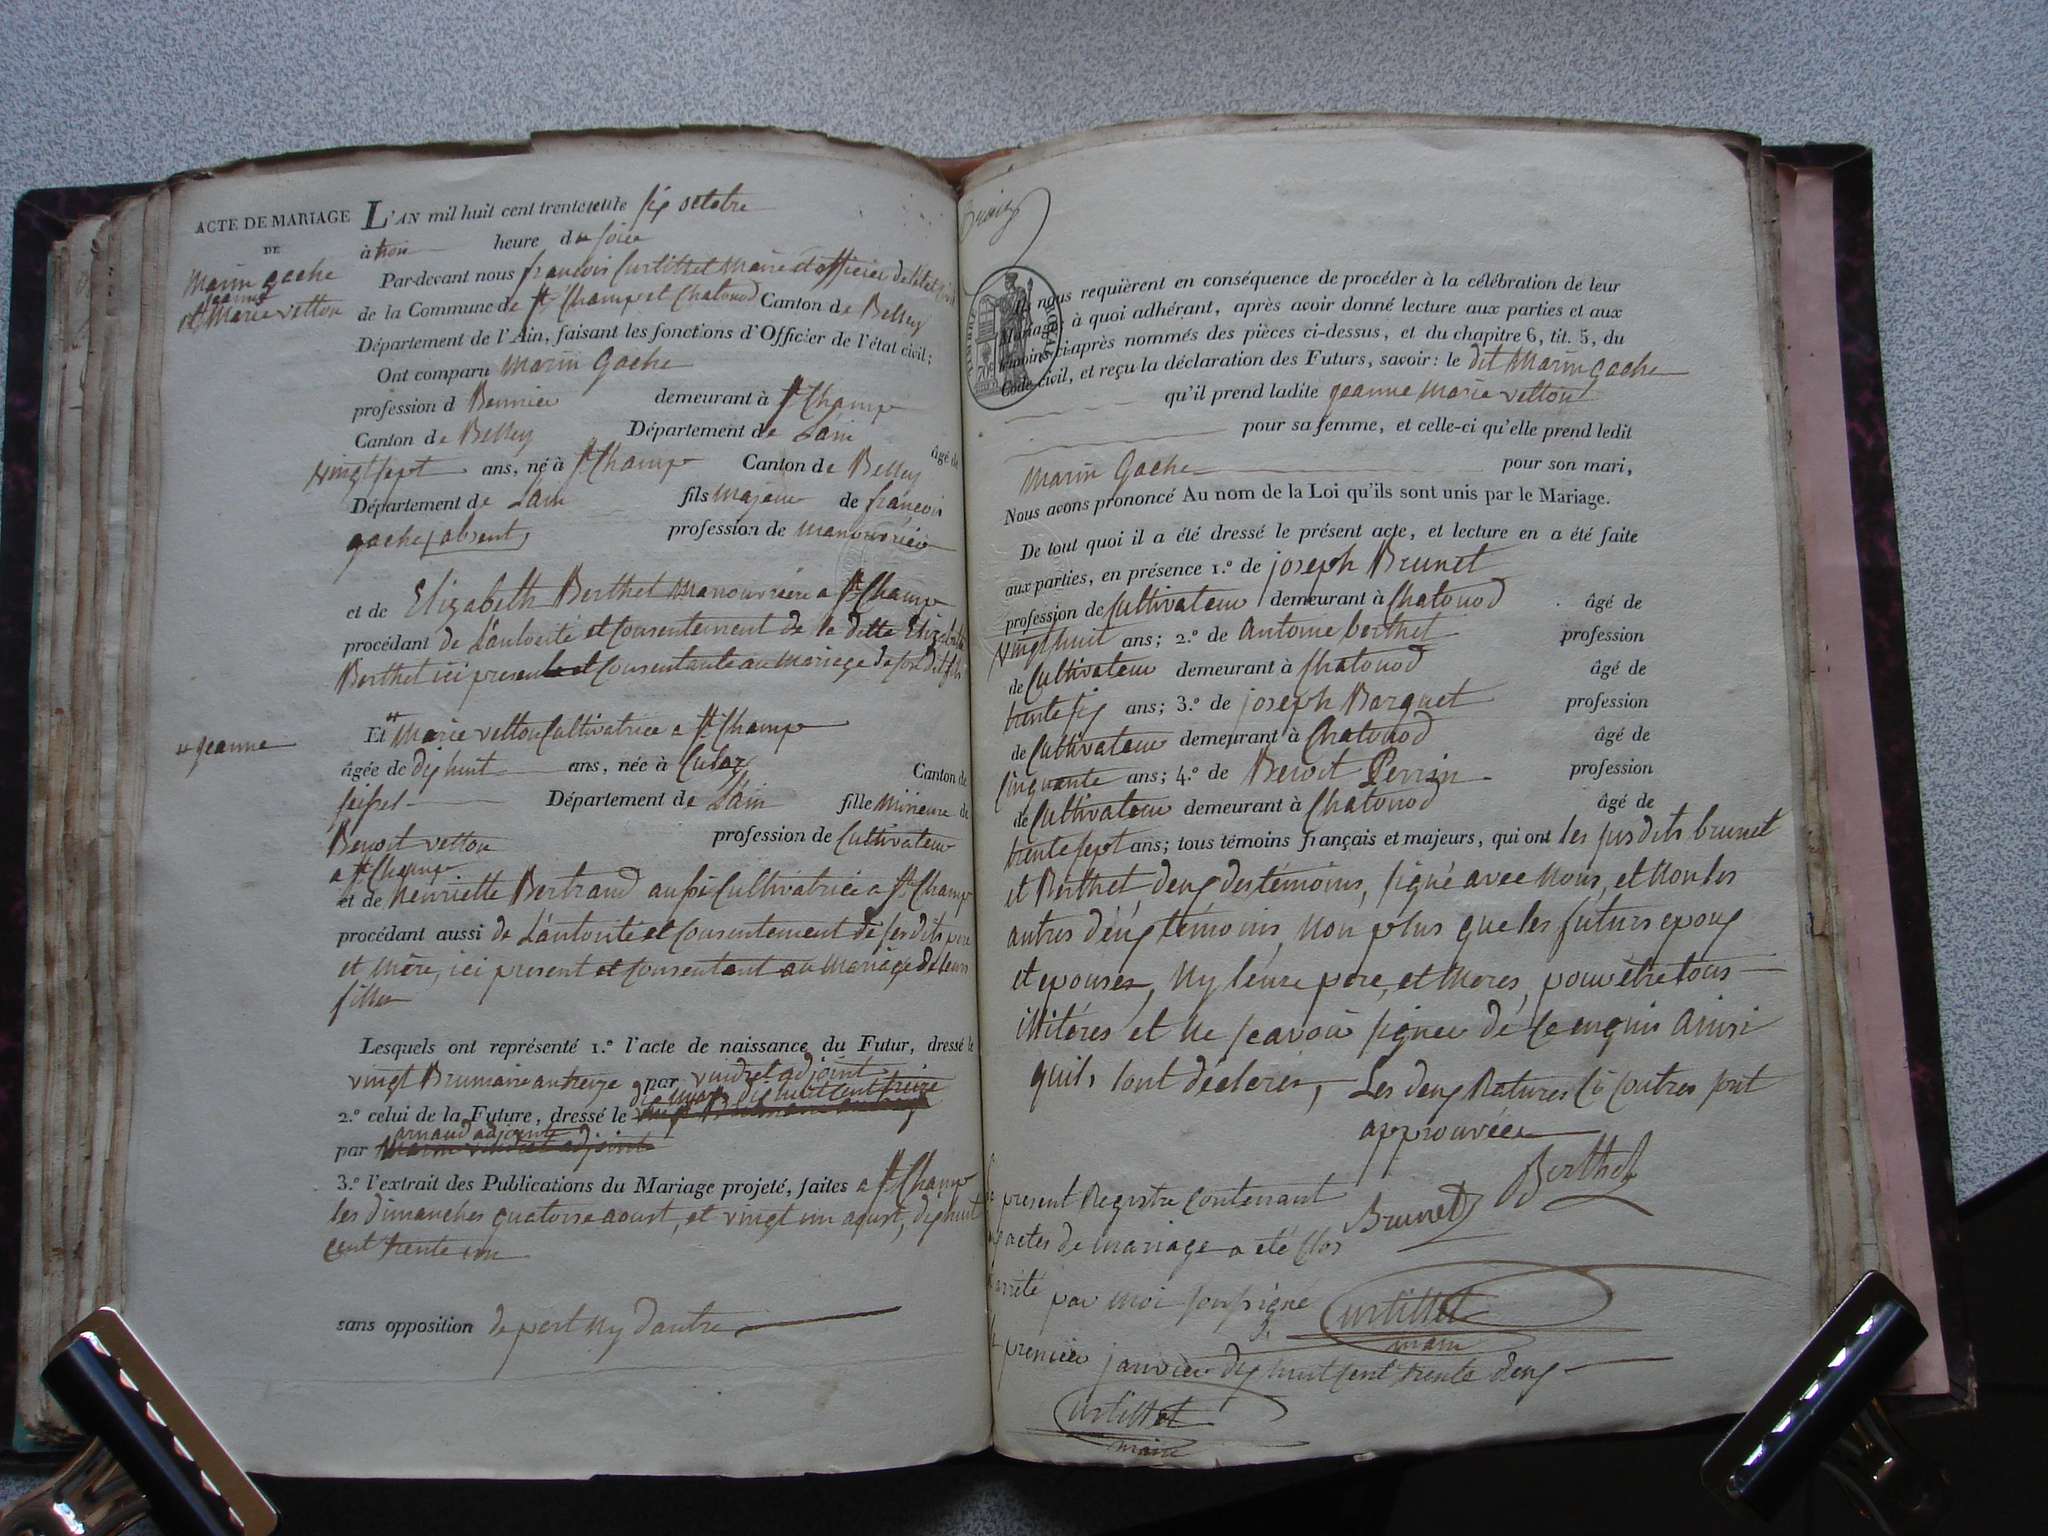 ACTE DE MARIAGE
DE
Marin Gache
et Jeanne Marie vettou
L'AN mil huit cent trente six octobre
à trois heure du soire
Par-devant nous françois Curtillet Maire et officier de létat civil
de la Commune de St Champ et Chatonod Canton de Belley
Département de l'Ain, faisant les fonctions d'Officier de l'état civil;
Ont comparu Marin Gache
profession d demeurant à St Champ
Canton de Belley Département de Lain âgé de
vingt sept ans, né à St Champ Canton de Belley
Département de Lain fils majeur de françois
gache, absent, profession de manouvrier
et de Elizabeth Berthet Manouvriere a St Champ
procédant de L'autorité et Consentement de la ditte Elizabeth
Berthet ici presente et Consentante au Mariage de son dit fils
# Jeanne
Et # Marie vettou Cultivatrice a St Champ
âgée de dix huit ans, née à Culoz Canton de
seissel Département de Lain fille Mineure de
Benoit vettou profession de Cultivateur
a St Champ
et de henriette Bertrand aussi Cultivatrice a St Champ
procédant aussi de L'autorité et Consentement de ses dits pere
et Mère, ici present et Consentant au Mariage de leurs
filles
Lesquels ont représenté 1.º l'acte de naissance du Futur, dressé le
vingt Brumaire an treize par vendret adjoint
2.º celui de la Future, dressé le dix mars dix huit cent treize
par arnaud adjoint
3.º l'extrait des Publications du Mariage projeté, faites a St Champ
les dimanches quatorse aoust, et vingt un aoust, dix huit
cent trente un
sans opposition de part Ny dautre
Ils nous requièrent en conséquence de procéder à la célébration de leur
Mariage à quoi adhérant, après avoir donné lecture aux parties et aux
témoins ci-après nommés des pièces ci-dessus, et du chapitre 6, tit. 5, du
Code civil, et reçu la déclaration des Futurs, savoir: le dit Marin Gache
qu'il prend ladite Jeanne Marie vettou
pour sa femme, et celle-ci qu'elle prend ledit
Marin Gache pour son mari,
Nous avons prononcé Au nom de la Loi qu'ils sont unis par le Mariage.
De tout quoi il a été dressé le présent acte, et lecture en a été faite
aux parties, en présence 1.º de joseph Brunet
profession de Cultivateur demeurant à Chatonod âgé de
vingt huit ans; 2.º de Antoine berthet profession
de Cultivateur demeurant à Chatonod âgé de
trente six ans; 3.º de joseph Barquet profession
de Cultivateur demeurant à Chatonod âgé de
Cinquante ans; 4.º de Benoit Perrin profession
de Cultivateur demeurant à Chatonod âgé de
trente sept ans; tous témoins français et majeurs, qui ont les susdits brunet
et Berthet, deux des témoins, signé avec Nous, et Non les
autres deux témoins, Non plus que les futurs epoux
et epouses, Ny leurs pere, et Meres, pour être tous
illitéres et Ne scavoir signer de ce enquis Ainsi
quils lont déclerés, Les deux Ratures Cÿ Contres sont
approuvées
Berthet
Brunet
present Registre Contenant
actes de mariage a été Clos
arrêté par moi soussigné
Curtillet
maire
premier janvier dix huit Cent trente deux
Curtillet
maire